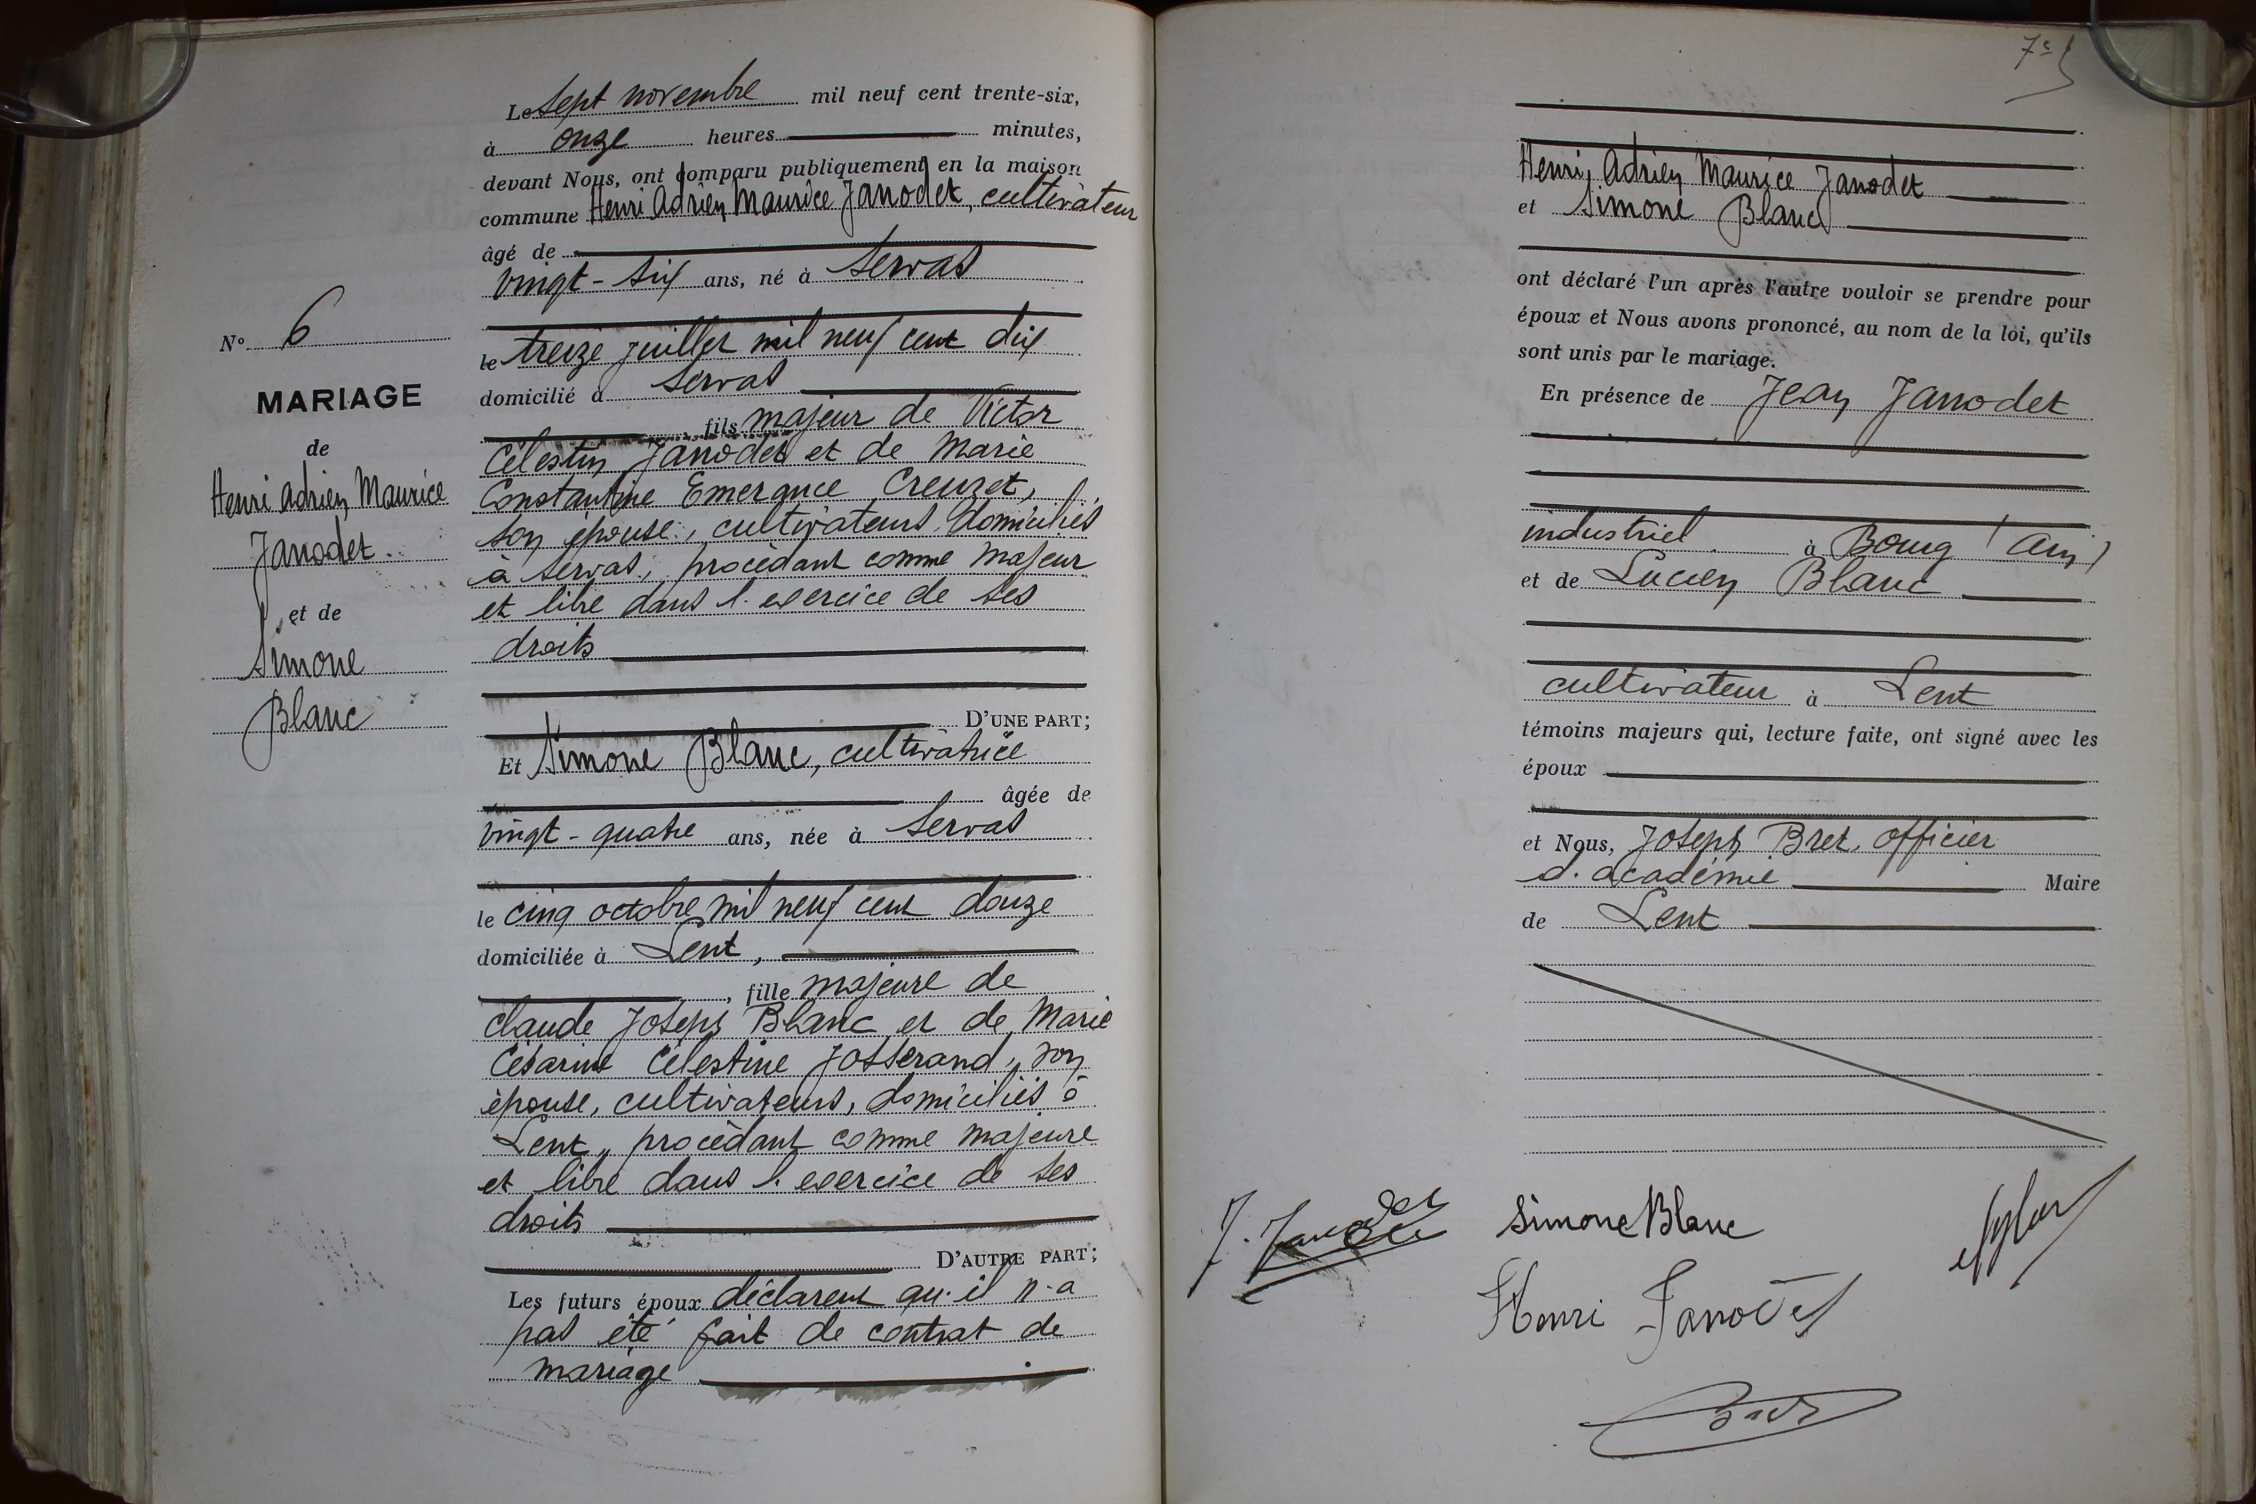 Le sept novembre mil neuf cent trente-six,
à onze heures minutes,
devant Nous, ont comparu publiquement en la maison
commune Henri Adrien Maurice Janodet, cultivateur
âgé de
vingt-six ans, né à Servas
le treize juillet mil neuf cent dix
domicilié à Servas
fils majeur de Victor
Célestin Janodet et de Marie
Constantine Emerance Creuzet,
son épouse, cultivateurs, domiciliés
à Servas, procédant comme majeur
et libre dans l'exercice de ses
droits
D'UNE PART;
Et Simone Blanc, cultivatrice
âgée de
vingt-quatre ans, née à Servas
le cinq octobre mil neuf cent douze
domiciliée à Lent,
, fille majeure de
Claude Joseph Blanc et de Marie
Césarine Célestine Josserand, son
épouse, cultivateurs, domiciliés à
Lent, procédant comme majeure
et libre dans l'exercice de ses
droits
D'AUTRE PART;
Les futurs époux déclarent qu'il n'a
pas été fait de contrat de
mariage
N° 6
MARIAGE
de
Henri Adrien Maurice
Janodet
et de
Simone
Blanc
Henri Adrien Maurice Janodet
et Simone Blanc
ont déclaré l'un après l'autre vouloir se prendre pour
époux et Nous avons prononcé, au nom de la loi, qu'ils
sont unis par le mariage.
En présence de Jean Janodet
industriel à Bourg (Ain)
et de Lucien Blanc
cultivateur à Lent
témoins majeurs qui, lecture faite, ont signé avec les
époux
et Nous, Joseph Bret, officier
d'académie Maire
de Lent
J. Janodet
Simone Blanc
Henri Janodet
Bret